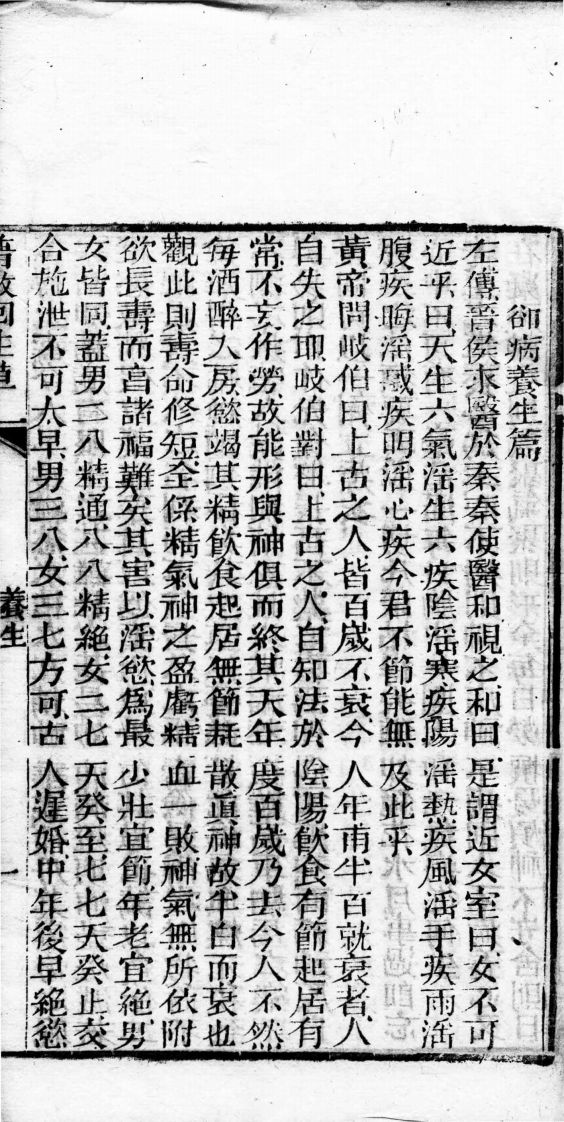 卻病養生篇
左傳晉侯求醫於秦秦使醫和視之和曰是謂近女室曰女不可
近乎曰天生六氣淫生六疾陰淫寒疾陽淫熱疾風淫手疾雨淫
腹疾晦淫惑疾明淫心疾今君不節能無及此乎
黃帝問岐伯曰上古之人皆百歲不衰今人年甫半百就衰者人
自失之耶岐伯對曰上古之人自知法於陰陽飲食有節起居有
常不妄作勞故能形與神俱而終其天年度百歲乃去今人不然
每酒醉入房慾竭其精飲食起居無節耗散眞神故半百而衰也
觀此則壽命修短全係精氣神之盈虧精血一敗神氣無所依附
欲長壽而享諸福難矣其害以淫慾爲最少壯宜節年老宜絕男
女皆同蓋男二八精通八八精絕女二七天癸至七七天癸止交
合施泄不可太早男三八女三七方可古人遲婚中年後早絕慾
養生
一